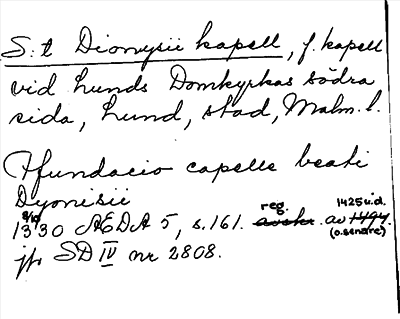 S:t Dionysii kapell, f. kapell
vid Lunds Domkyrkas södra
sida, Lund, stad, Malm. l.
Pfundacio capelle beati
Dyonisii
8/10 1330 AEDA 5, s. 161. reg. avskr. av 1494. 1425 u.d. (o. senare)
jfr SD IV nr 2808.